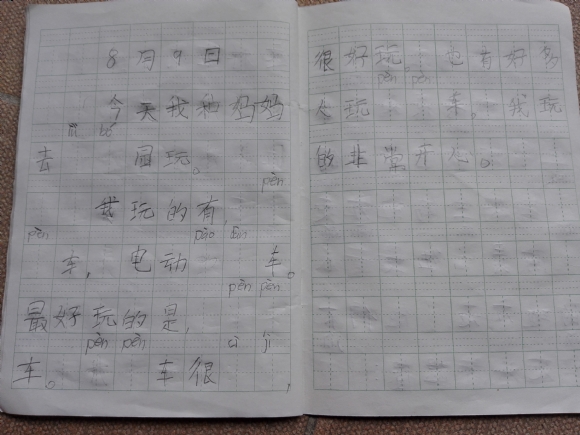 8月9日
今天我和妈妈
bó
去 园玩。
pèn
我玩的有,
pèn pǎo
车,电动 车。
pèn pèn
最好玩的是,
pèn pèn cì jī
车。 车很
很好玩, 也有好多
pèn pèn
人玩 车,我玩
的非常开心。